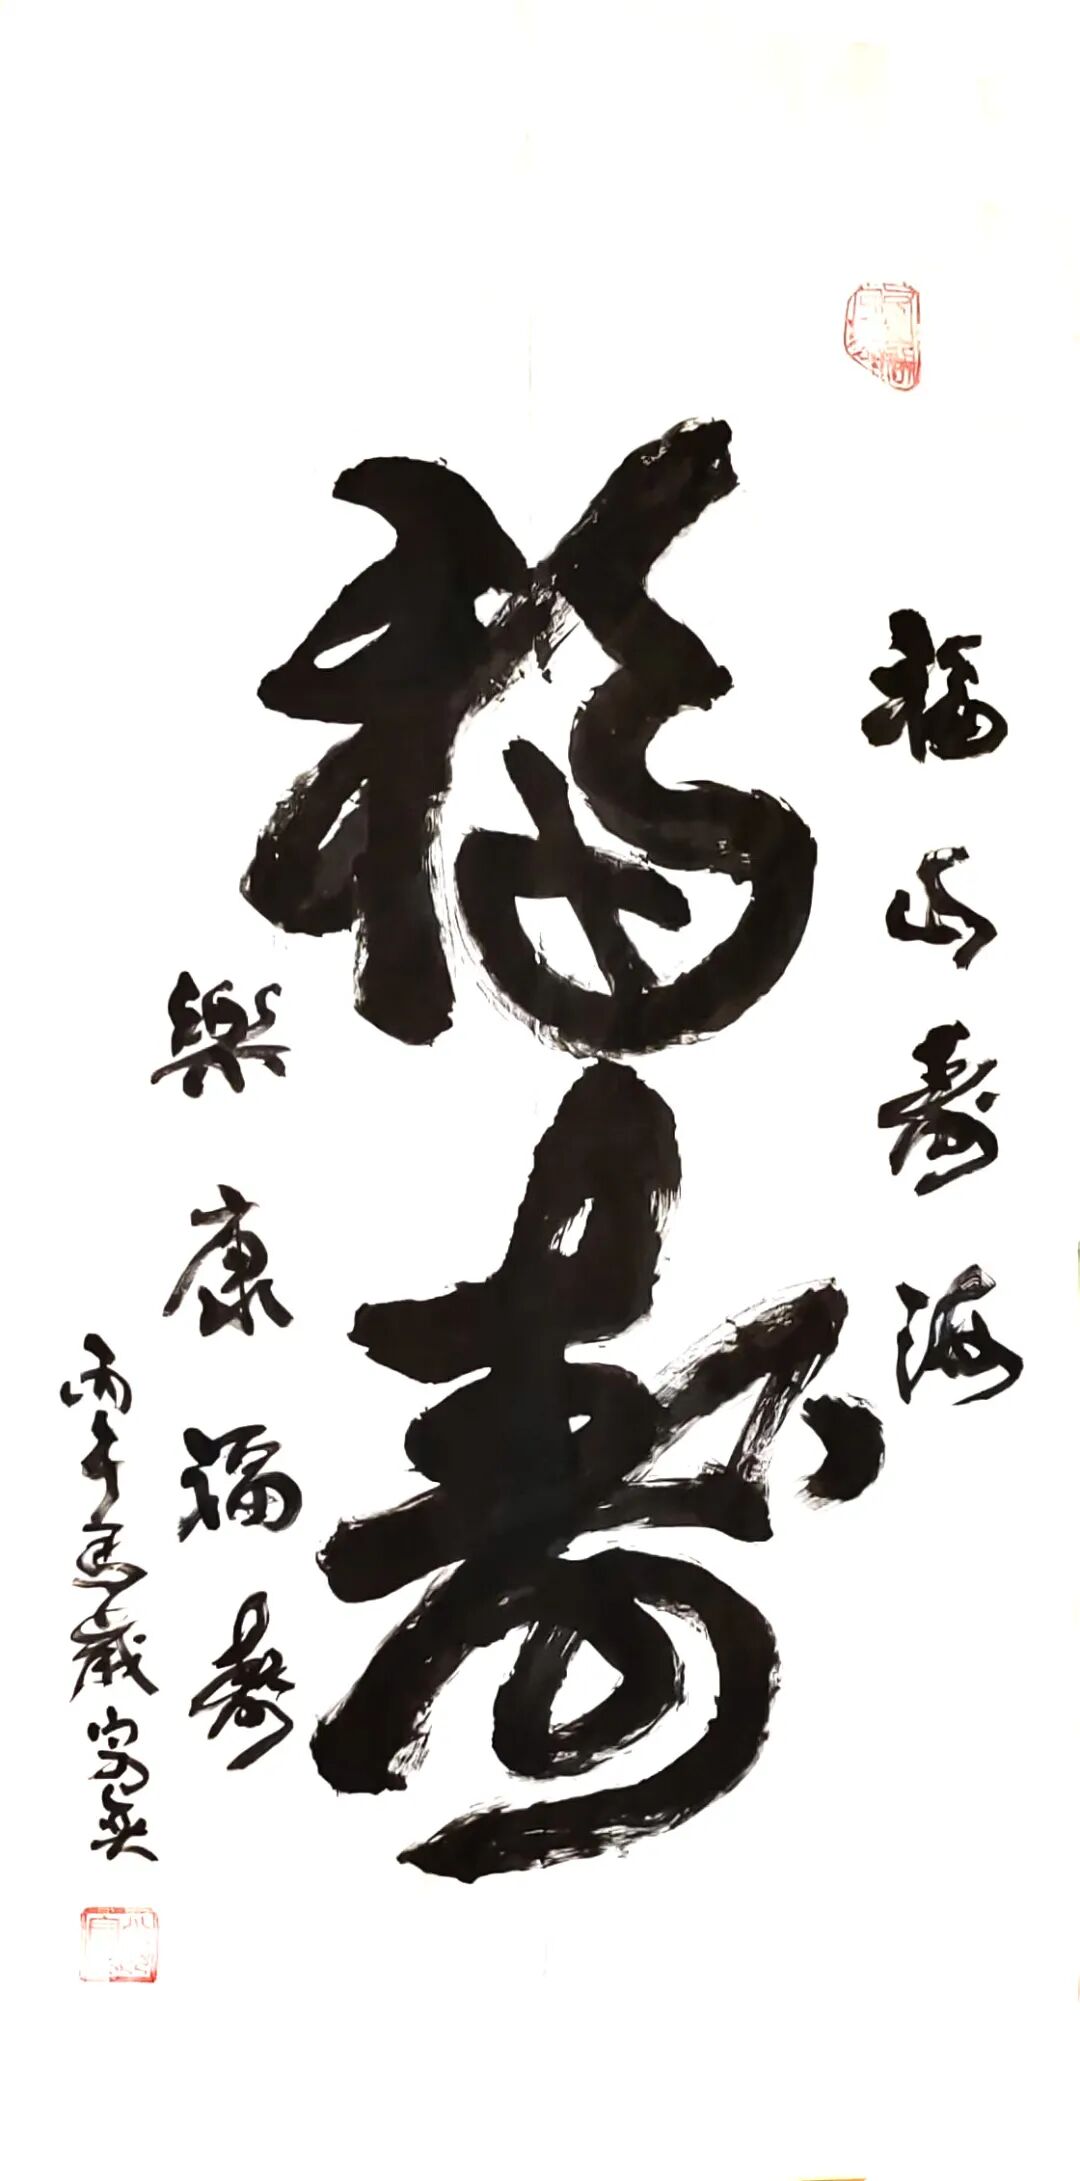 福山壽海
福壽
樂康福壽
丙午馬歲